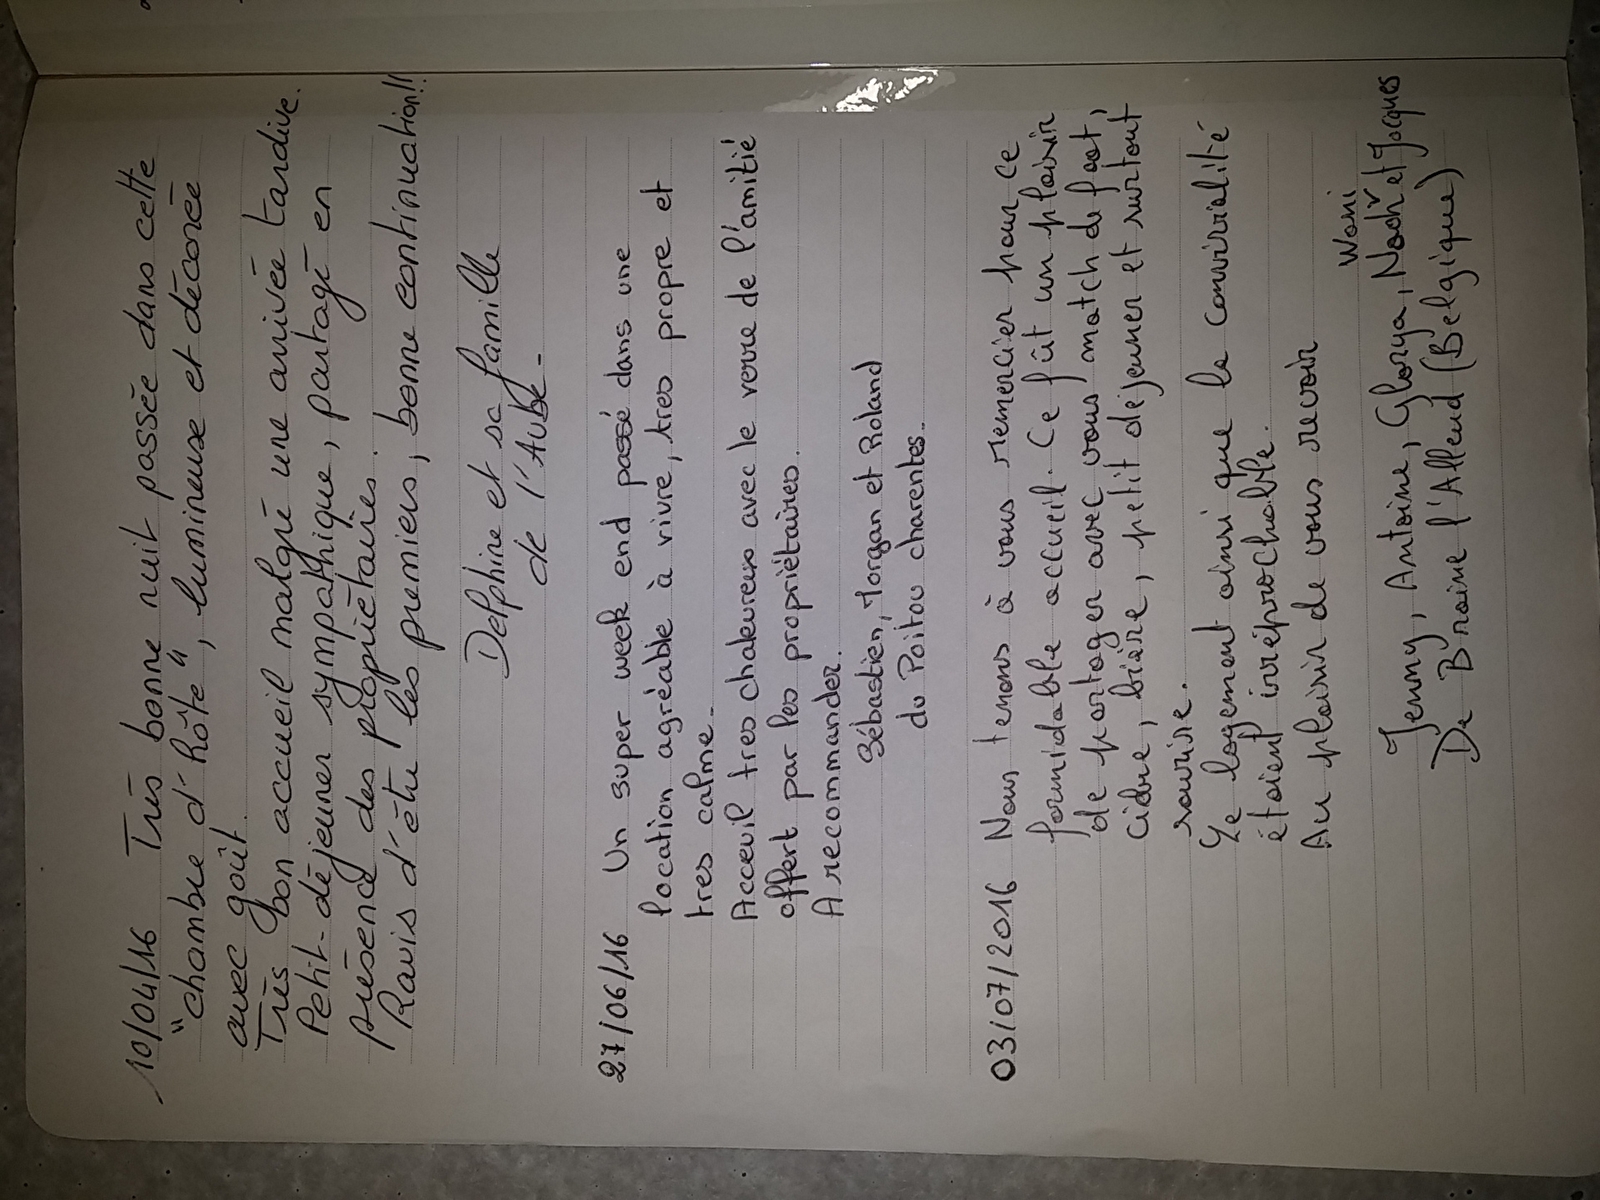 10/04/16 Très bonne nuit passée dans cette
"chambre d'hôte", lumineuse et décorée
avec goût.
Très bon accueil malgré une arrivée tardive.
Petit-déjeuner sympathique, partagé en
présence des propriétaires.
Ravis d'être les premiers, bonne continuation!!
Delphine et sa famille
de l'Aube.
27/06/16 Un super week end passé dans une
location agréable à vivre, tres propre et
tres calme.
Acceuil tres chaleureux avec le verre de l'amitié
offert par les propriétaires.
A recommander.
Sébastien, Morgan et Roland
du Poitou charentes.
03/07/2016 Nous tenons à vous remercier pour ce
formidable accueil. Ce fût un plaisir
de partager avec vous match de foot,
cidre, bière, petit déjeuner et surtout
sourire.
Le logement ainsi que la convivialité
étaient irréprochable.
Au plaisir de vous revoir
Wani
Jenny, Antoine, Glorya, et Jacques
De Braine l'Alleud (Belgique)